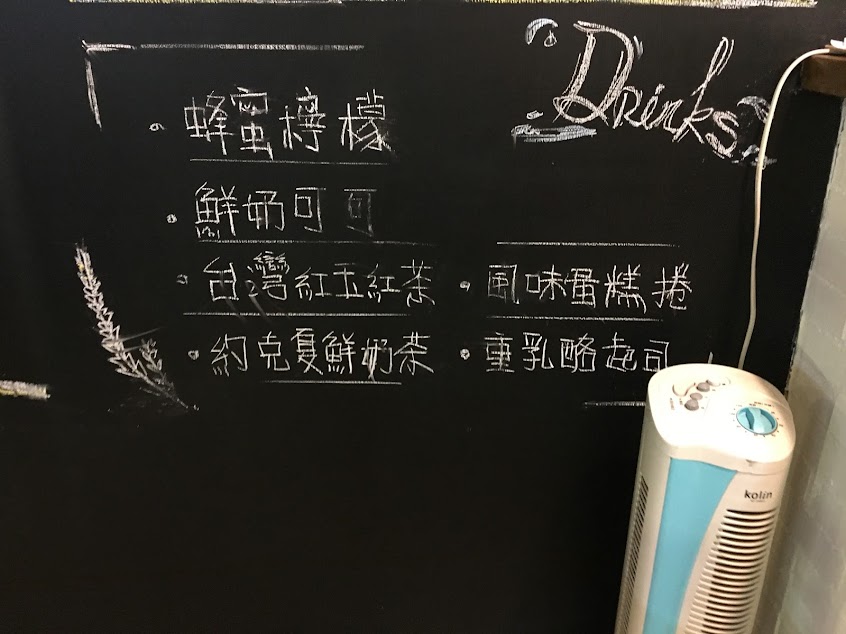 Drinks
蜂蜜檸檬
鮮奶可可
台灣紅玉紅茶
約克夏鮮奶茶
風味蛋糕捲
重乳酪起司
kolin